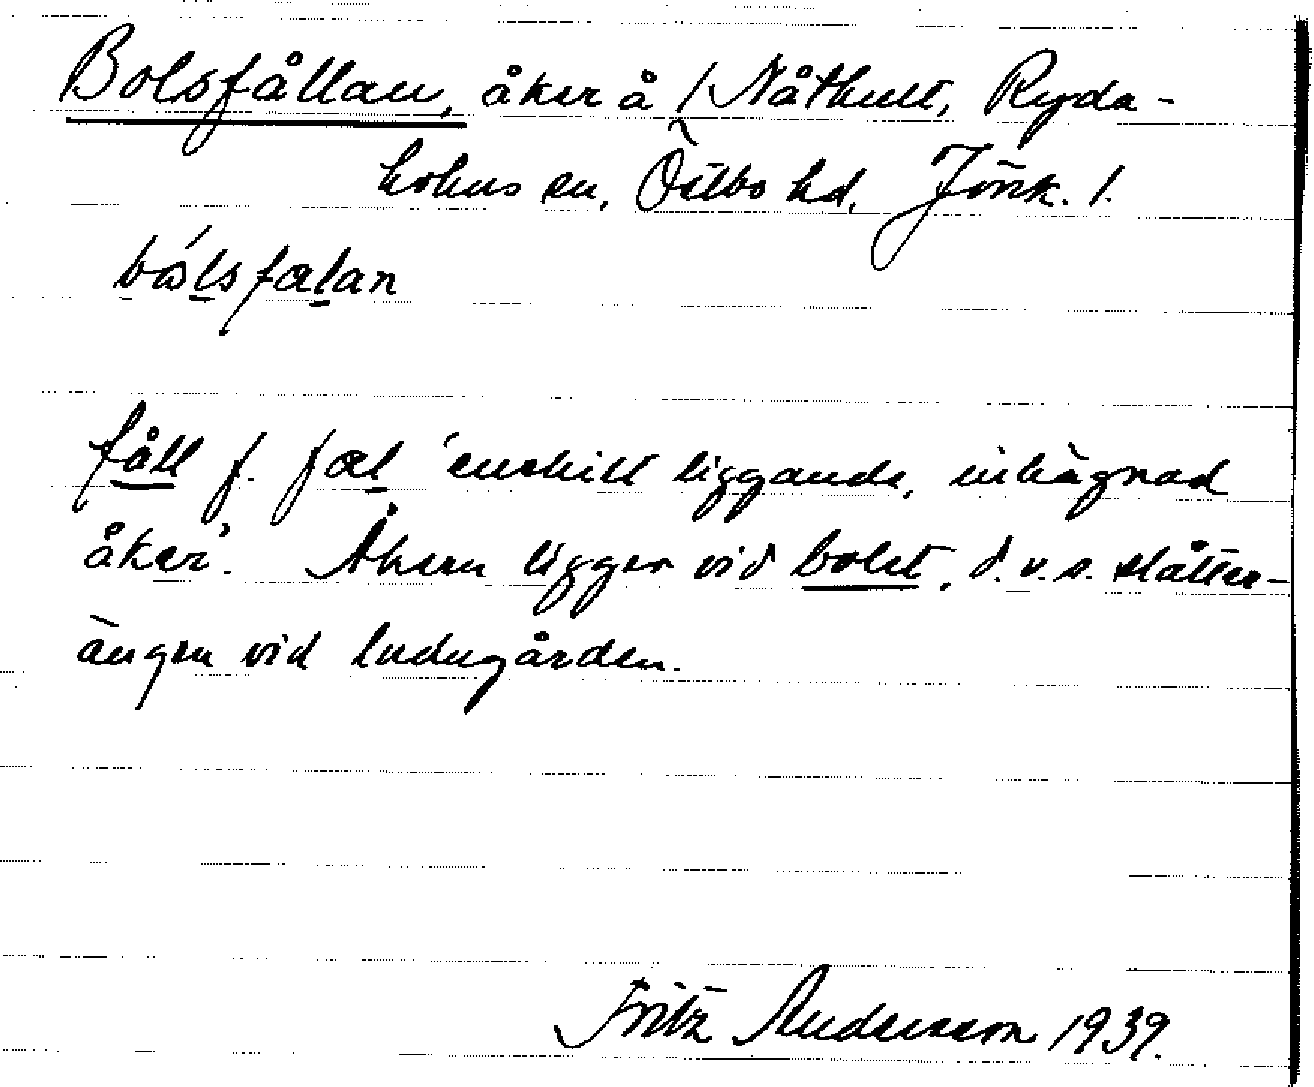 Bolsfållan, åker å 1 Nåthult, Ryda-
holms sn, Östbo hd, Jönk. l.
bólsfalan
fåll f. fal 'enskilt liggande, inhägnad
åker'. Åkern ligger vid bolet, d.v.s. slåtter-
ängen vid ladugården.
Fritz Andersson 1939.